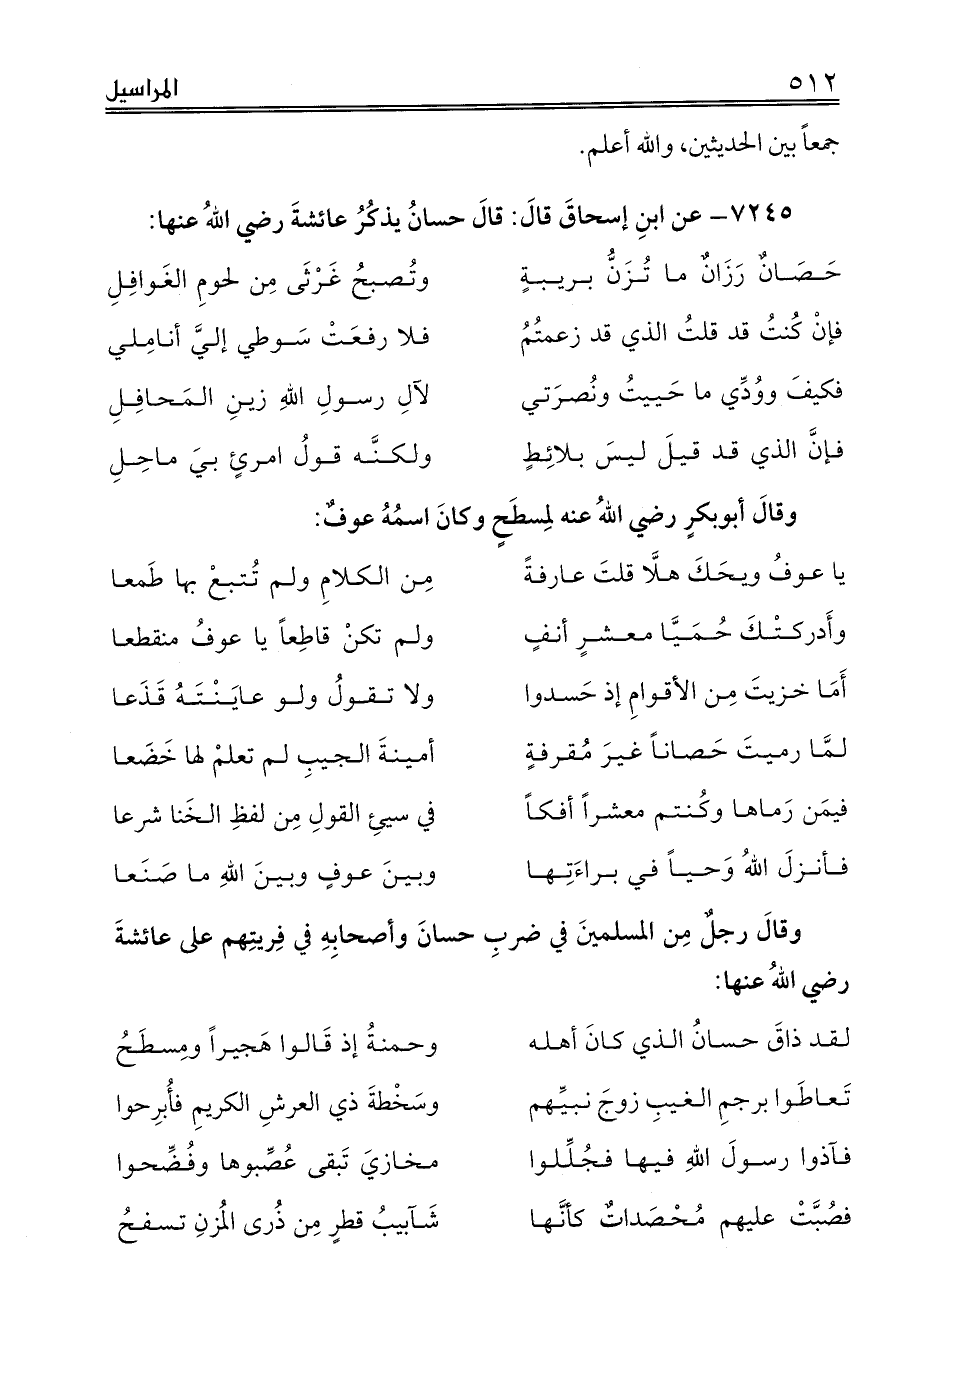 ٥١٢
المراسيل
جمعاً بين الحديثين، والله أعلم.
٧٢٤٥– عن ابنِ إسحاقَ قالَ: قالَ حسانُ يذكُرُ عائشةَ رضي اللهُ عنها:
حَـصَـانٌ رَزَانٌ ما تُـزَنُّ بـريـبـةٍ وتُـصـبـحُ غَرْثَى مِن لحومِ الغَوافِلِ
فإنْ كُنتُ قد قلتُ الذي قد زعمتُمُ فلا رفـعَـتْ سَـوطي إليَّ أنامِـلي
فكيفَ ووُدِّي ما حَـييتُ ونُصرَتي لآلِ رسـولِ اللهِ زيـنِ الـمَـحافِـلِ
فـإنَّ الذي قـد قـيـلَ ليـسَ بـلائِطٍ ولـكـنَّـه قـولُ امـرئٍ بيَ مـاحِـلِ
وقالَ أبوبكرٍ رضي اللهُ عنه لِمسطَحٍ وكانَ اسمُهُ عوفٌ:
يا عـوفُ ويـحَـكَ هـلَّا قلتَ عـارفةً مِـن الـكـلامِ ولـم تُـتـبـعْ بها طَمعا
وأدركـتْـكَ حُـمَـيَّـا مـعـشـرٍ أنـفٍ ولـم تكنْ قاطِعاً يا عوفُ منقطعا
أمَا خـزيـتَ مِـن الأقـوامِ إذ حَـسدوا ولا تـقـولُ ولـو عـايَـنْـتَـهُ قَـذَعا
لـمَّا رمـيـتَ حَصاناً غيـرَ مُـقـرفةٍ أمـيـنـةَ الـجـيـبِ لـم تعلمْ لها خَضَعا
فيمَن رَمـاهـا وكُـنـتـم معشـراً أفـكـاً في سيئِ القولِ مِن لفظِ الـخَنا شرعا
فـأنـزلَ اللهُ وَحـيـاً فـي بـراءَتِـهـا وبـيـنَ عـوفٍ وبـيـنَ اللهِ مـا صَـنَـعـا
وقالَ رجلٌ مِن المسلمينَ في ضربِ حسانَ وأصحابِهِ في فِريتِهم على عائشةَ
رضي اللهُ عنها:
لقـد ذاقَ حـسانُ الـذي كـانَ أهلـه وحـمـنـةُ إذ قَـالـوا هَجيـراً ومِـسطَـحُ
تَـعـاطَـوا برجـمِ الـغيـبِ زوجَ نـبـيِّـهـم وسَـخْـطةَ ذي العرشِ الكريمِ فأُبرِحوا
فـآذوا رسـولَ اللهِ فـيـهـا فـجُـلِّـلـوا مـخـازيَ تَبقى عُصِّبوها وفُضِّحوا
فصُبَّتْ عليهم مُـحْـصَـداتٌ كأنَّـهـا شَـآبيبُ قطرٍ مِن ذُرى المُزنِ تـسـفـحُ